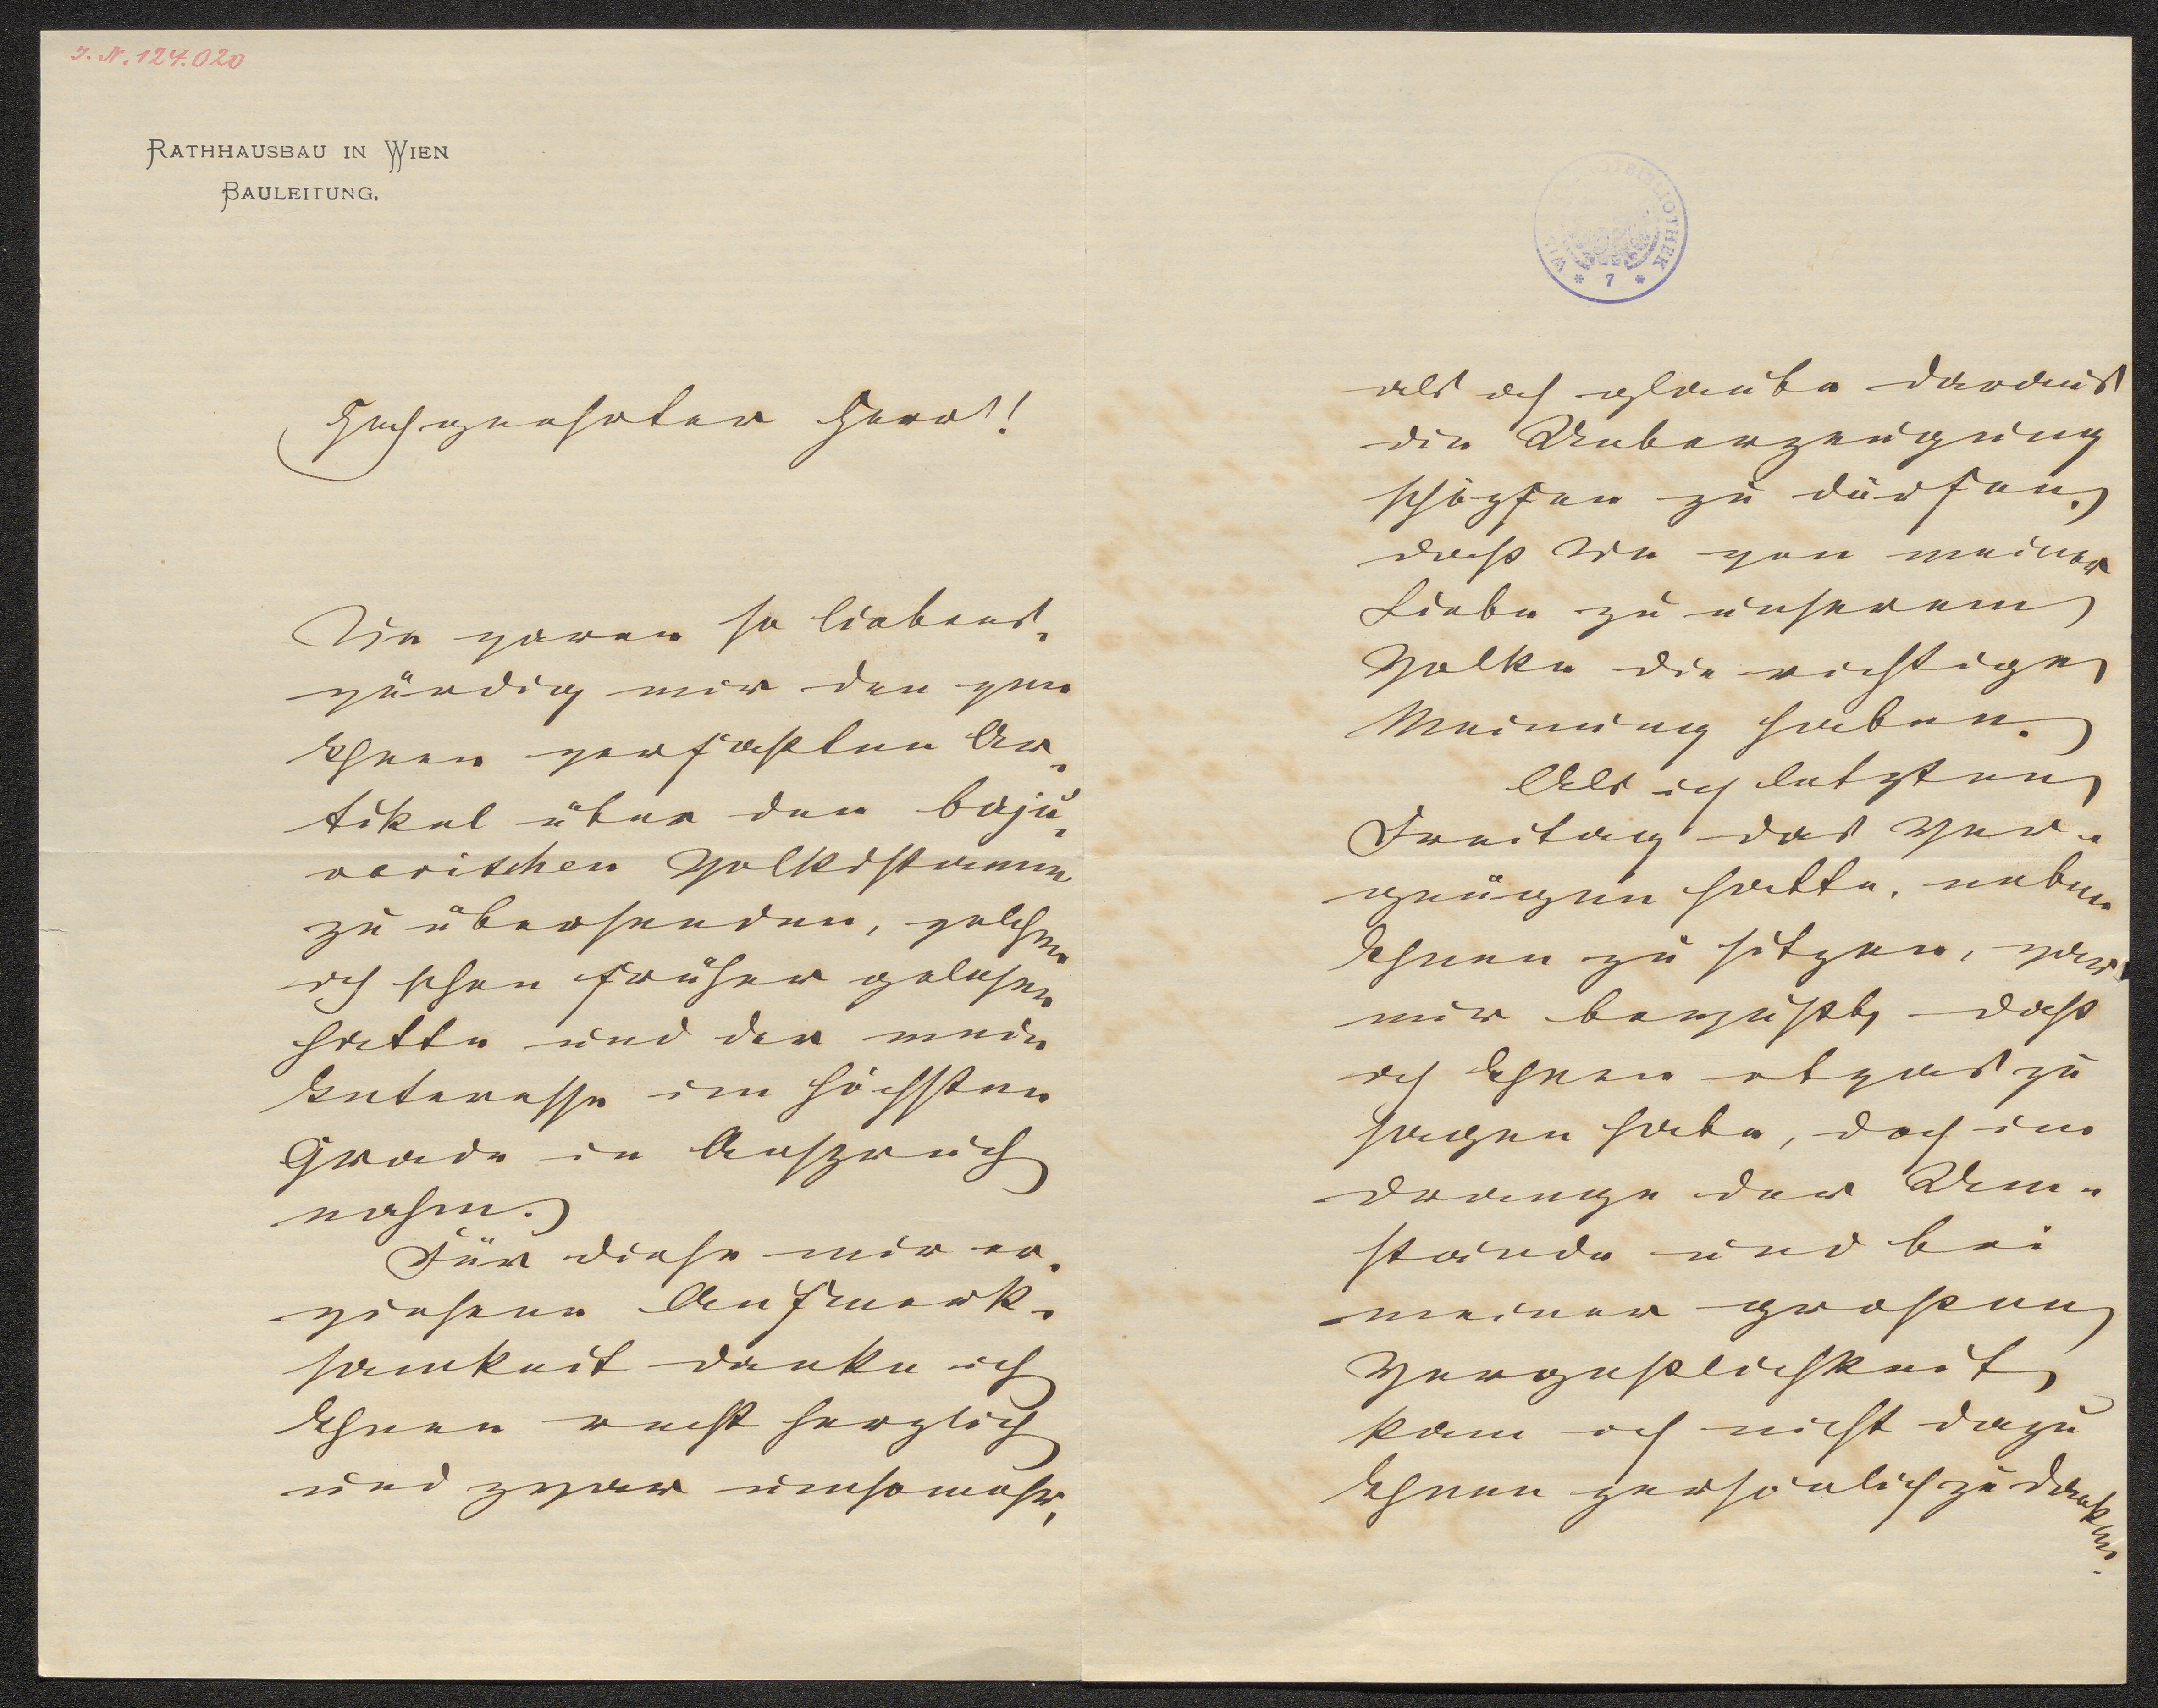 I. N. 124.020
RATHHAUSBAU IN WIEN
BAULEITUNG.
Hochgeehrter Herr!
Sie waren so liebens-
würdig mir den von
Ihnen verfaßten Ar-
tikel über den baju-
varischen Volksstamm
zu übersenden, welchen
ich schon früher gelesen
hatte und der mein
Interesse im höchsten
Grade in Anspruch
nahm.
Für diese mir er-
wiesene Aufmerk-
samkeit danke ich
Ihnen recht herzlich
und zwar umsomehr,
BIBLIOTHEK
* 7 *
als ich glaube daraus
die Ueberzeugung
schöpfen zu dürfen,
daß Sie von meiner
Liebe zu unserem
Volke die richtige
Meinung haben.
Als ich letzten
Freitag das Ver-
gnügen hatte, neben
Ihnen zu sitzen, war
mir bewußt, daß
ich Ihnen etwas zu
sagen habe, doch im
Drange der Um-
stände und bei
meiner großen
Vergeßlichkeit
kam ich nicht dazu
Ihnen persönlich zu danken.